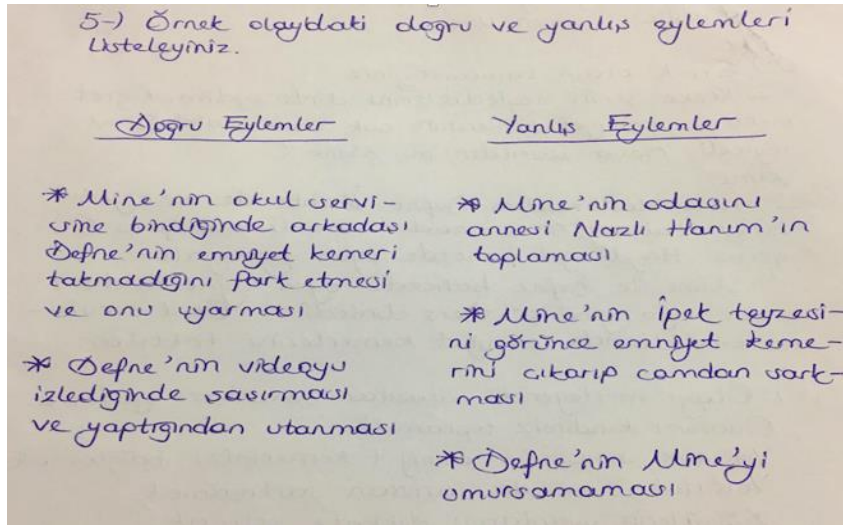 5-) Örnek olaydaki doğru ve yanlış eylemleri
Listeleyiniz.
Doğru Eylemler
* Mine'nin okul servi-
sine bindiğinde arkadaşı
Defne'nin emniyet kemeri
takmadığını fark etmesi
ve onu uyarması
* Defne'nin videoyu
izlediğinde şaşırması
ve yaptığından utanması
Yanlış Eylemler
* Mine'nin odasını
annesi Nazlı Hanım'ın
toplaması
* Mine'nin İpek teyzesi-
ni görünce emniyet keme-
rini çıkarıp camdan sark-
ması
* Defne'nin Mine'yi
umursamaması